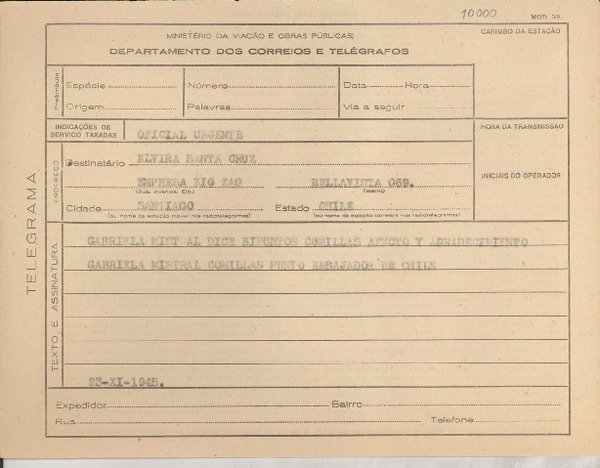 10000
MOD 52
MINISTÉRIO DA VIAÇÃO E OBRAS PÚBLICAS
CARIMBO DA ESTAÇÃO
DEPARTAMENTO DOS CORREIOS E TELÉGRAFOS
Preâmbulo
Espécie
Número
Data
Hora
Origem
Palavras
Via a seguir
INDICAÇÕES DE SERVICO TAXADAS
OFICIAL URGENTE
HORA DA TRANSMISSÃO
ENDEREÇO
Destinatário ELVIRA SANTA CRUZ
INICIAIS DO OPERADOR
EMPRESA ZIG ZAG BELLAVISTA 069.
(Rua, Avenida, Etc.) (Bairro)
Cidade SANTIAGO Estado CHILE
(ou nome da estação móvel nos radiotelegramas) (ou nome da estação terrestre nos radiotelegramas)
TELEGRAMA
TEXTO E ASSINATURA
GABRIELA MIST AL DICE BIPUNTOS COMILLAS AFECTO Y AGRADECIMIENTO
GABRIELA MISTRAL COMILLAS PUNTO EMBAJADOR DE CHILE
23-XI-1945.
Expedidor Bairro
Rua Telefone